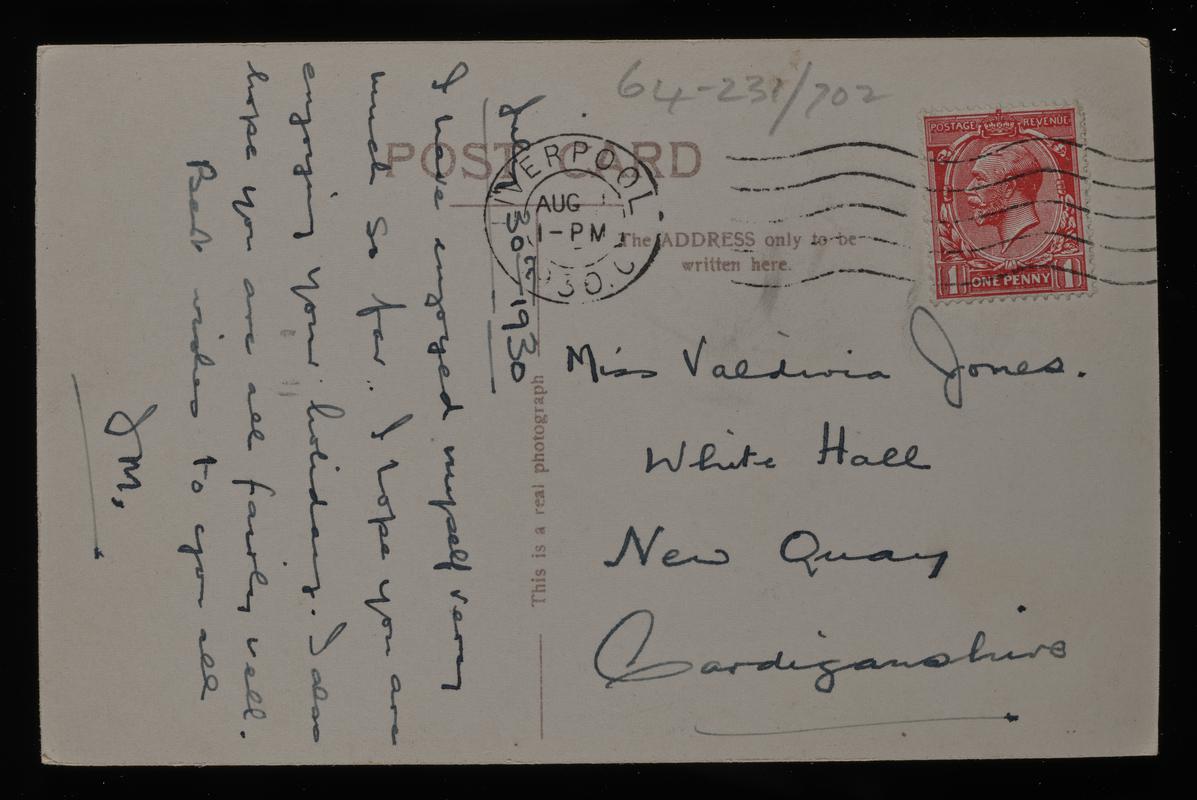 64-231/702
POST CARD
LIVERPOOL.
AUG
1-PM
30.
POSTAGE REVENUE
1 ONE PENNY 1
The ADDRESS only to be
written here.
This is a real photograph
July 30th 1930
I have enjoyed myself very
much so far. I hope you are
enjoying your holidays. I also
hope you are all fairly well.
Best wishes to you all
JM.
Miss Valdivia Jones.
White Hall
New Quay
Cardiganshire